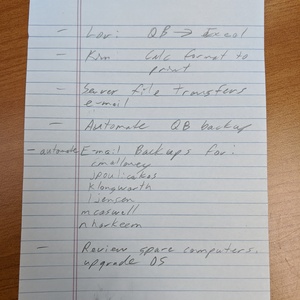 - Lori: QB → Excel
- Kim CNC format to
print
- Server file transfers
e-mail
- Automate QB backup
- automate E-mail Backups for:
cmalloney
jpoulicakos
klongworth
ljensen
mcaswell
nharkeem
- Review spare computers.
upgrade OS